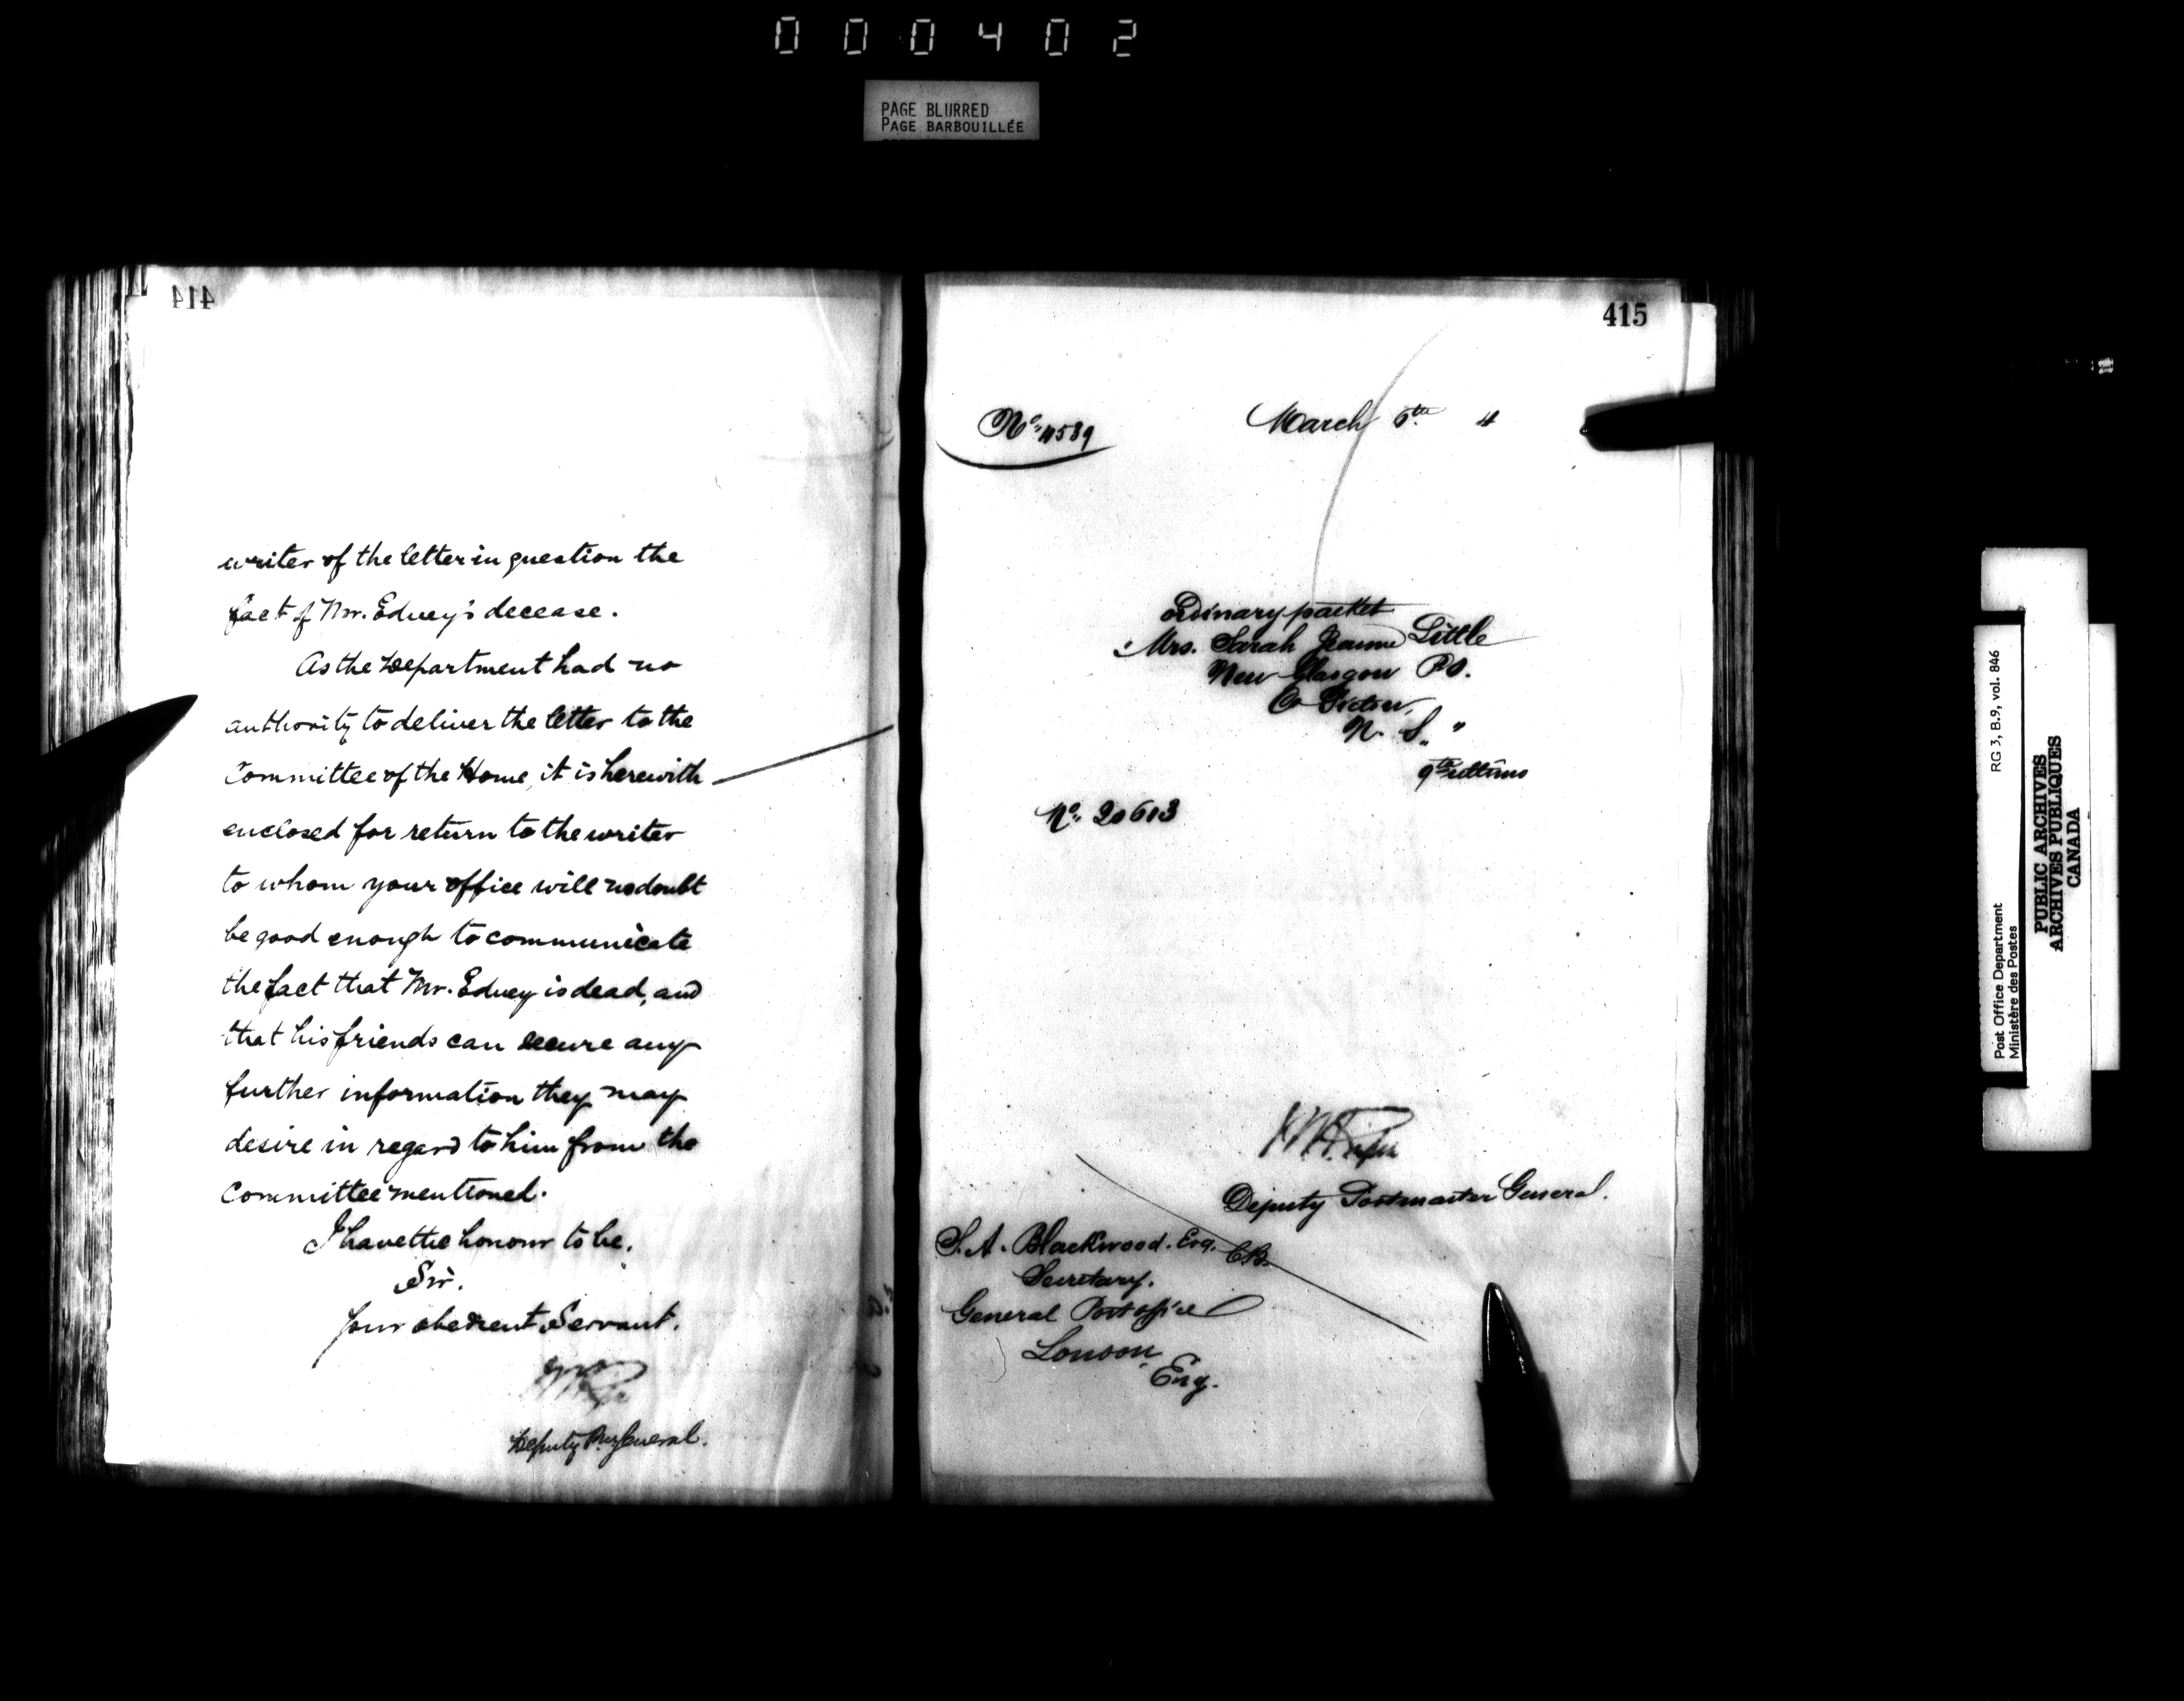 000402
PAGE BLURRED
PAGE BARBOUILLÉE
414
writer of the letter in question the
fact of Mr. Edney's decease.
As the Department had no
authority to deliver the letter to the
Committee of the Home, it is herewith
enclosed for return to the writer
to whom your office will no doubt
be good enough to communicate
the fact that Mr. Edney is dead, and
that his friends can secure any
further information they may
desire in regard to him from the
Committee mentioned.
I have the honour to be,
Sir.
Your obedient Servant.
Deputy Pmr General.
415
No. 11539
March 6th 4
ordinary packet
"Mrs. Sarah Jeanne Little
New Glasgow P.O.
Co Pictou,
N. S."
9th ultimo
No. 20613
Deputy Postmaster General.
S. A. Blackwood. Esq. C.B.
Secretary.
General Post office
London
Eng.
Post Office Department
Ministère des Postes
RG 3, B.9, vol. 846
PUBLIC ARCHIVES
ARCHIVES PUBLIQUES
CANADA